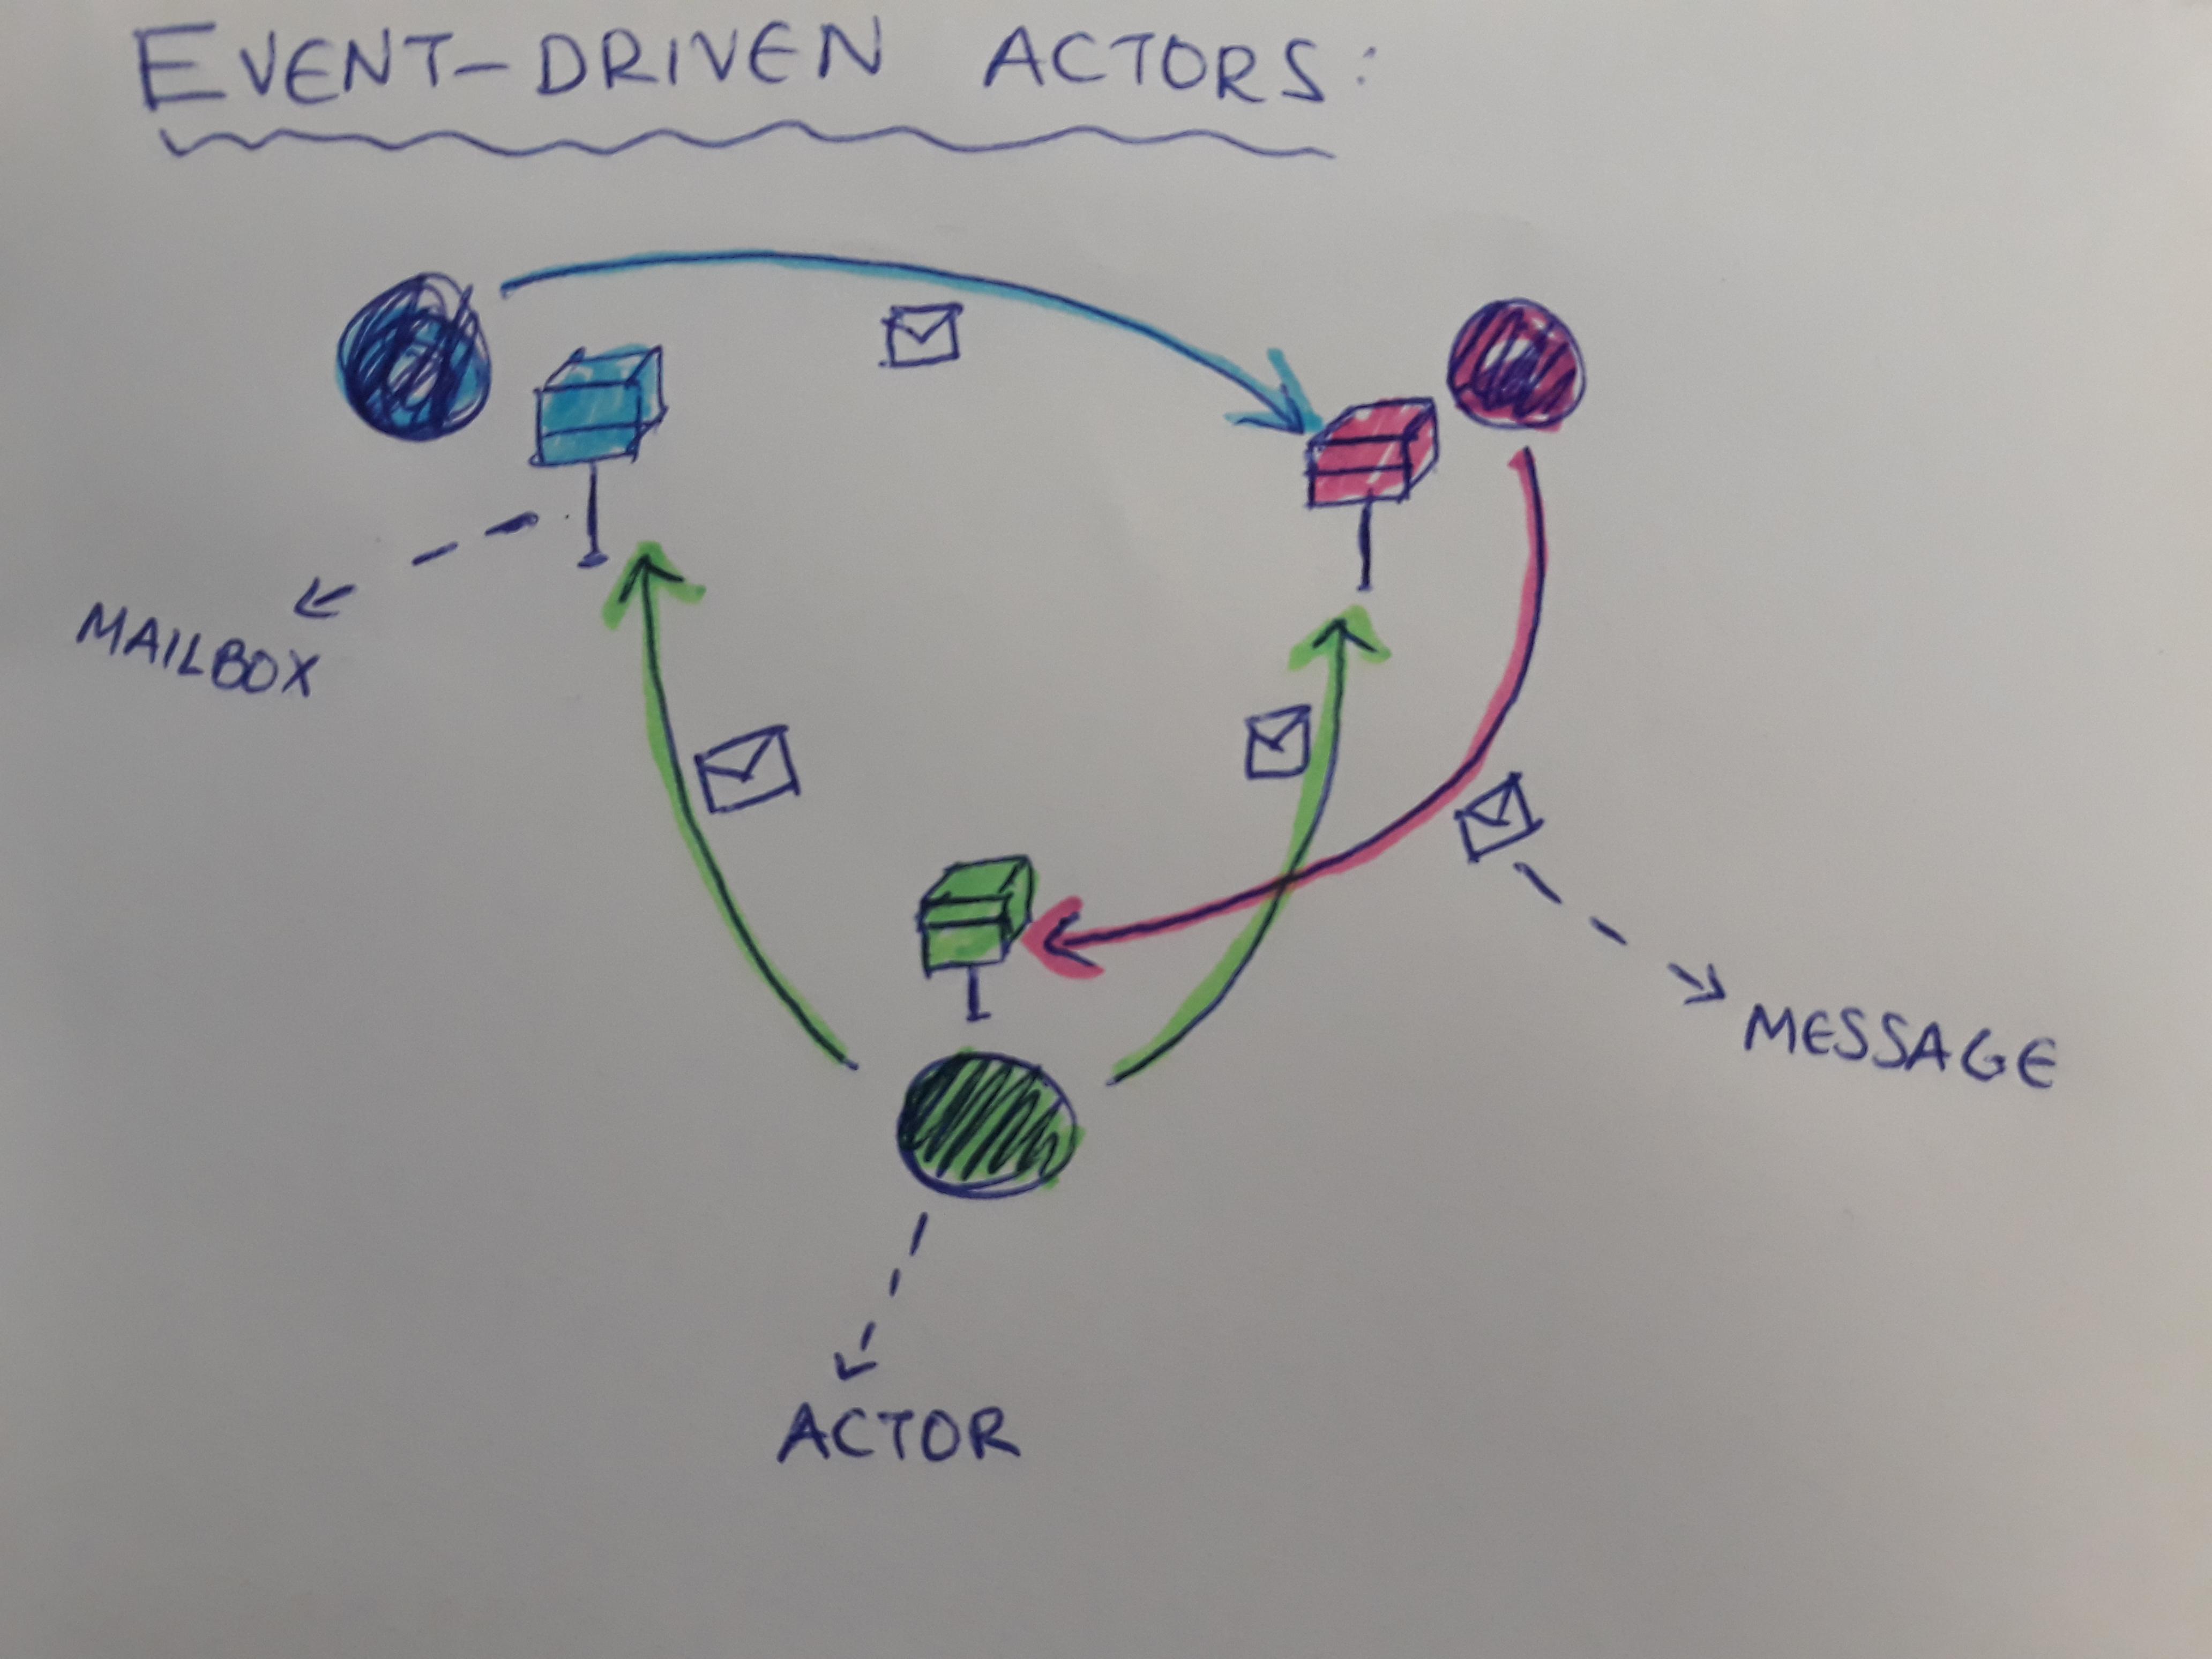 EVENT-DRIVEN ACTORS:
MAILBOX
MESSAGE
ACTOR